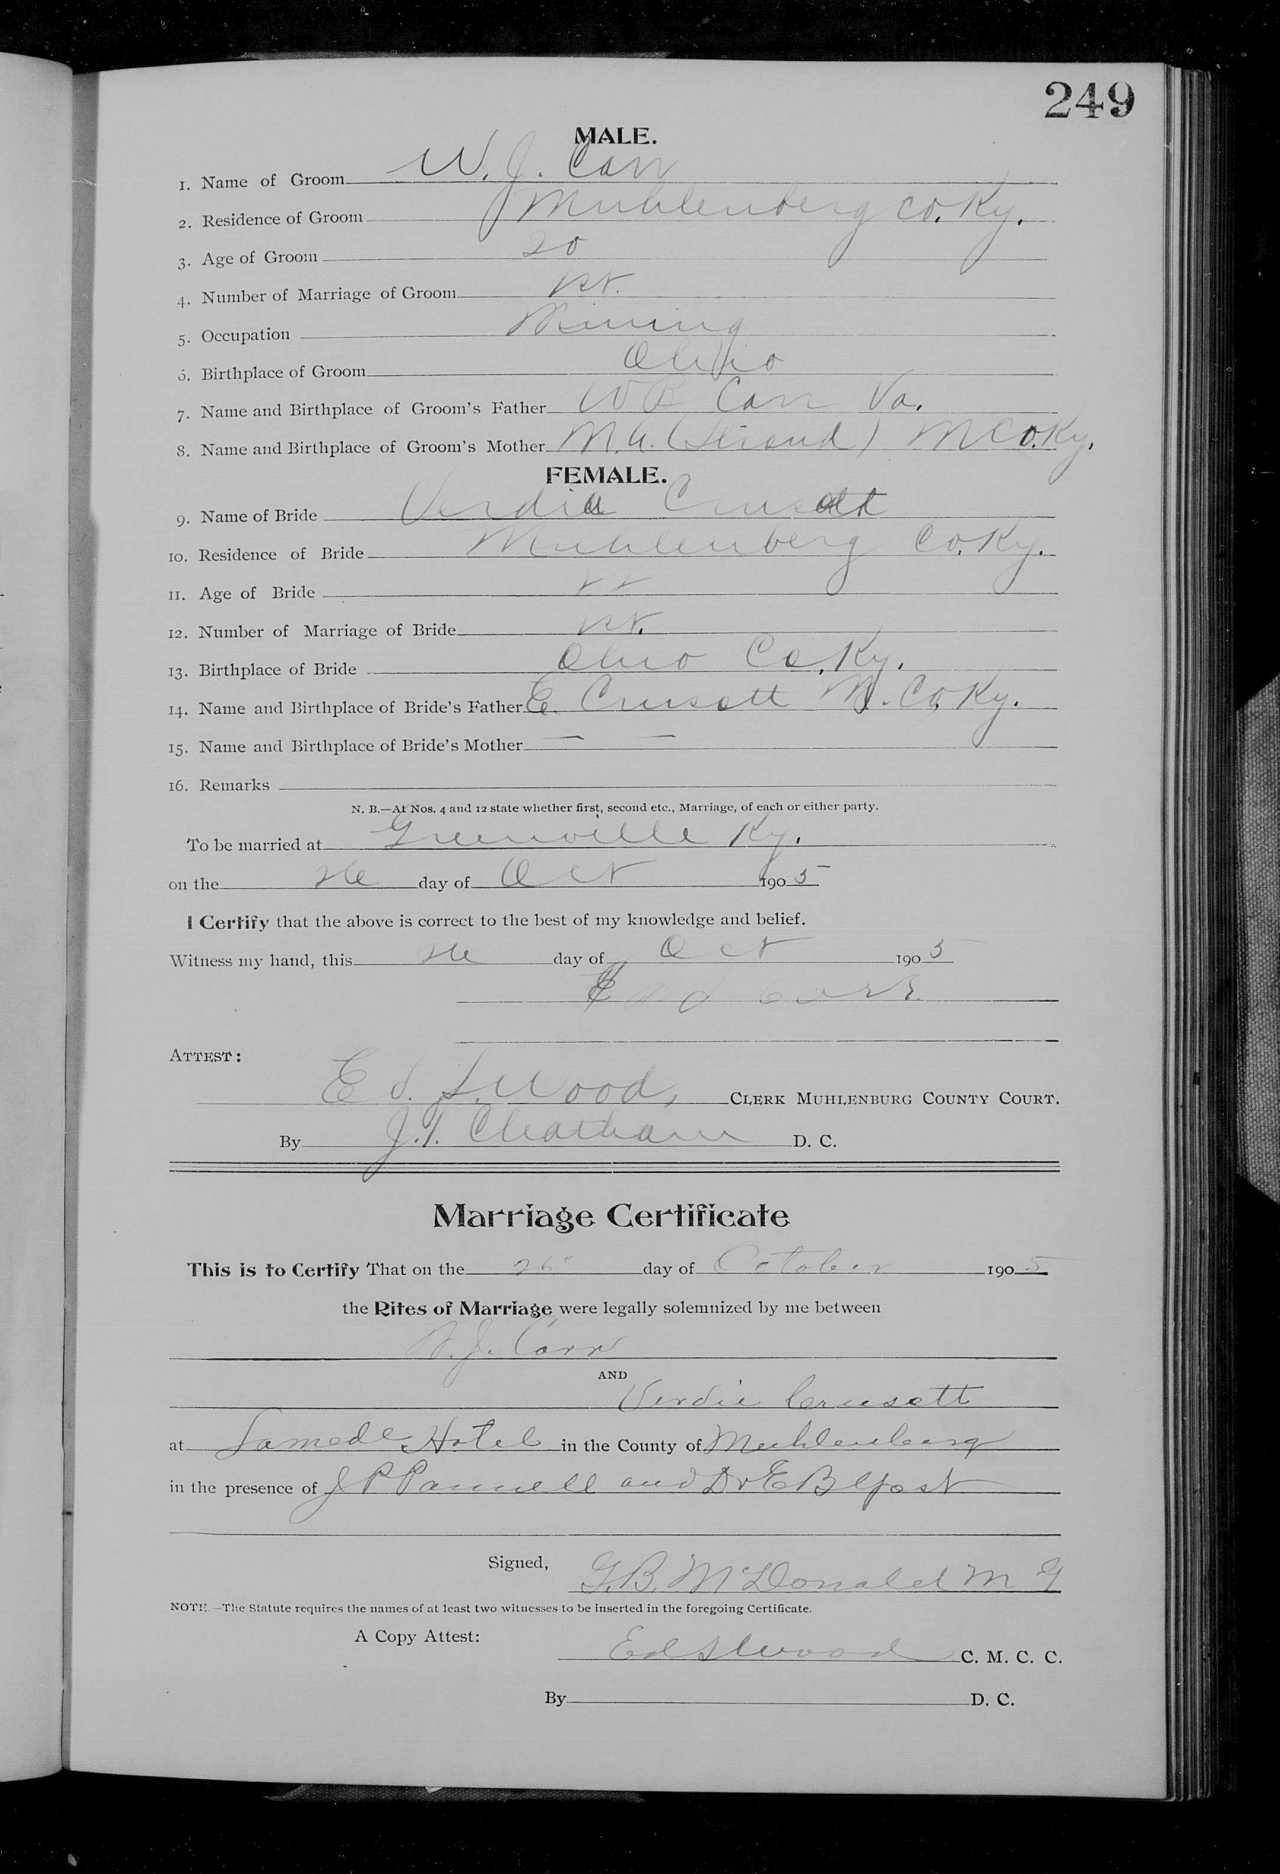 249
MALE.
1. Name of Groom W. J. Carr
2. Residence of Groom Muhlenberg Co. Ky.
3. Age of Groom 20
4. Number of Marriage of Groom 1st.
5. Occupation Mining
6. Birthplace of Groom Ohio
7. Name and Birthplace of Groom's Father W B Carr Va.
8. Name and Birthplace of Groom's Mother M. A. ( ) M Co. Ky.
FEMALE.
9. Name of Bride Verdie Crusett
10. Residence of Bride Muhlenberg Co. Ky.
11. Age of Bride 22
12. Number of Marriage of Bride 1st.
13. Birthplace of Bride Ohio Co. Ky.
14. Name and Birthplace of Bride's Father E. Crusett M. Co. Ky.
15. Name and Birthplace of Bride's Mother — —
16. Remarks
N. B.—At Nos. 4 and 12 state whether first, second etc., Marriage, of each or either party.
To be married at Greenville Ky.
on the 26 day of Oct 1905
I Certify that the above is correct to the best of my knowledge and belief.
Witness my hand, this 26 day of Oct 1905
Carr
ATTEST:
Ed. S. Wood, CLERK MUHLENBURG COUNTY COURT.
By J. T. Cheatham D. C.
Marriage Certificate
This is to Certify That on the 26 day of October 1905
the Rites of Marriage were legally solemnized by me between
W. J. Carr
AND
Verdie Crusett
at Lamede Hotel in the County of Muhlenberg
in the presence of J P Pannell and Dr E B
Signed, G. B. McDonald M G
NOTE.—The Statute requires the names of at least two witnesses to be inserted in the foregoing Certificate.
A Copy Attest:
Ed S Wood C. M. C. C.
By D. C.